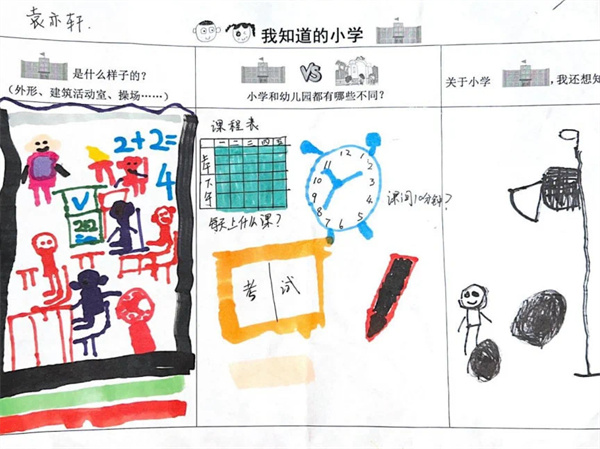 袁亦轩.
我知道的小学
是什么样子的?
(外形、建筑活动室、操场……)
2+2=
4
VS
小学和幼儿园都有哪些不同?
课程表
一 二 三 四 五
上
午
下
午
每天上什么课?
12 1 2 3 4 5 6 7 8 9 10 11
课间10分钟?
考 试
关于小学 ,我还想知